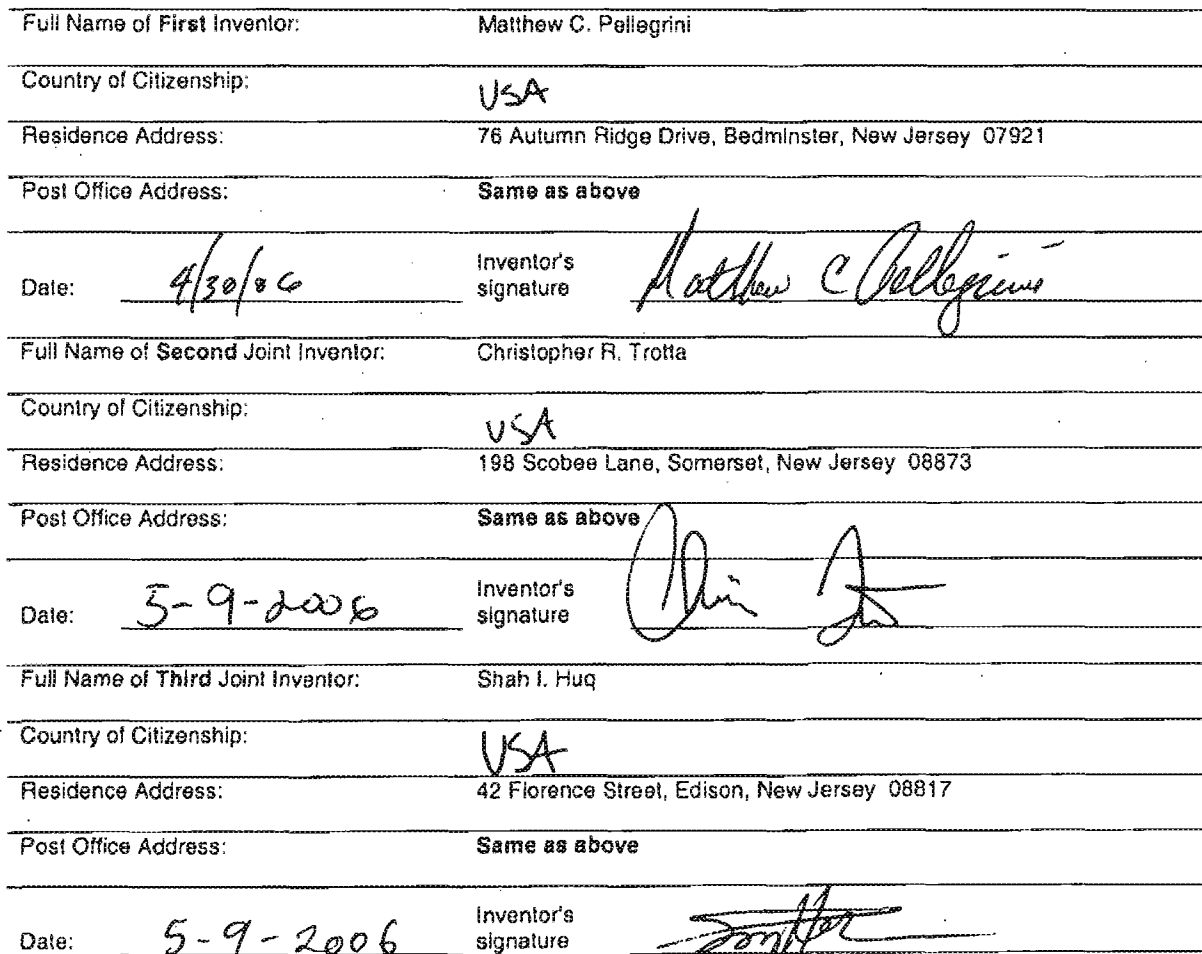 Full Name of First Inventor: Matthew C. Pellegrini
Country of Citizenship: USA
Residence Address: 76 Autumn Ridge Drive, Bedminster, New Jersey 07921
Post Office Address: Same as above
Date: 4/30/06 Inventor's signature Matthew C Pellegrini
Full Name of Second Joint Inventor: Christopher R. Trotta
Country of Citizenship: USA
Residence Address: 198 Scobee Lane, Somerset, New Jersey 08873
Post Office Address: Same as above
Date: 5-9-2006 Inventor's signature
Full Name of Third Joint Inventor: Shah I. Huq
Country of Citizenship: USA
Residence Address: 42 Florence Street, Edison, New Jersey 08817
Post Office Address: Same as above
Date: 5-9-2006 Inventor's signature